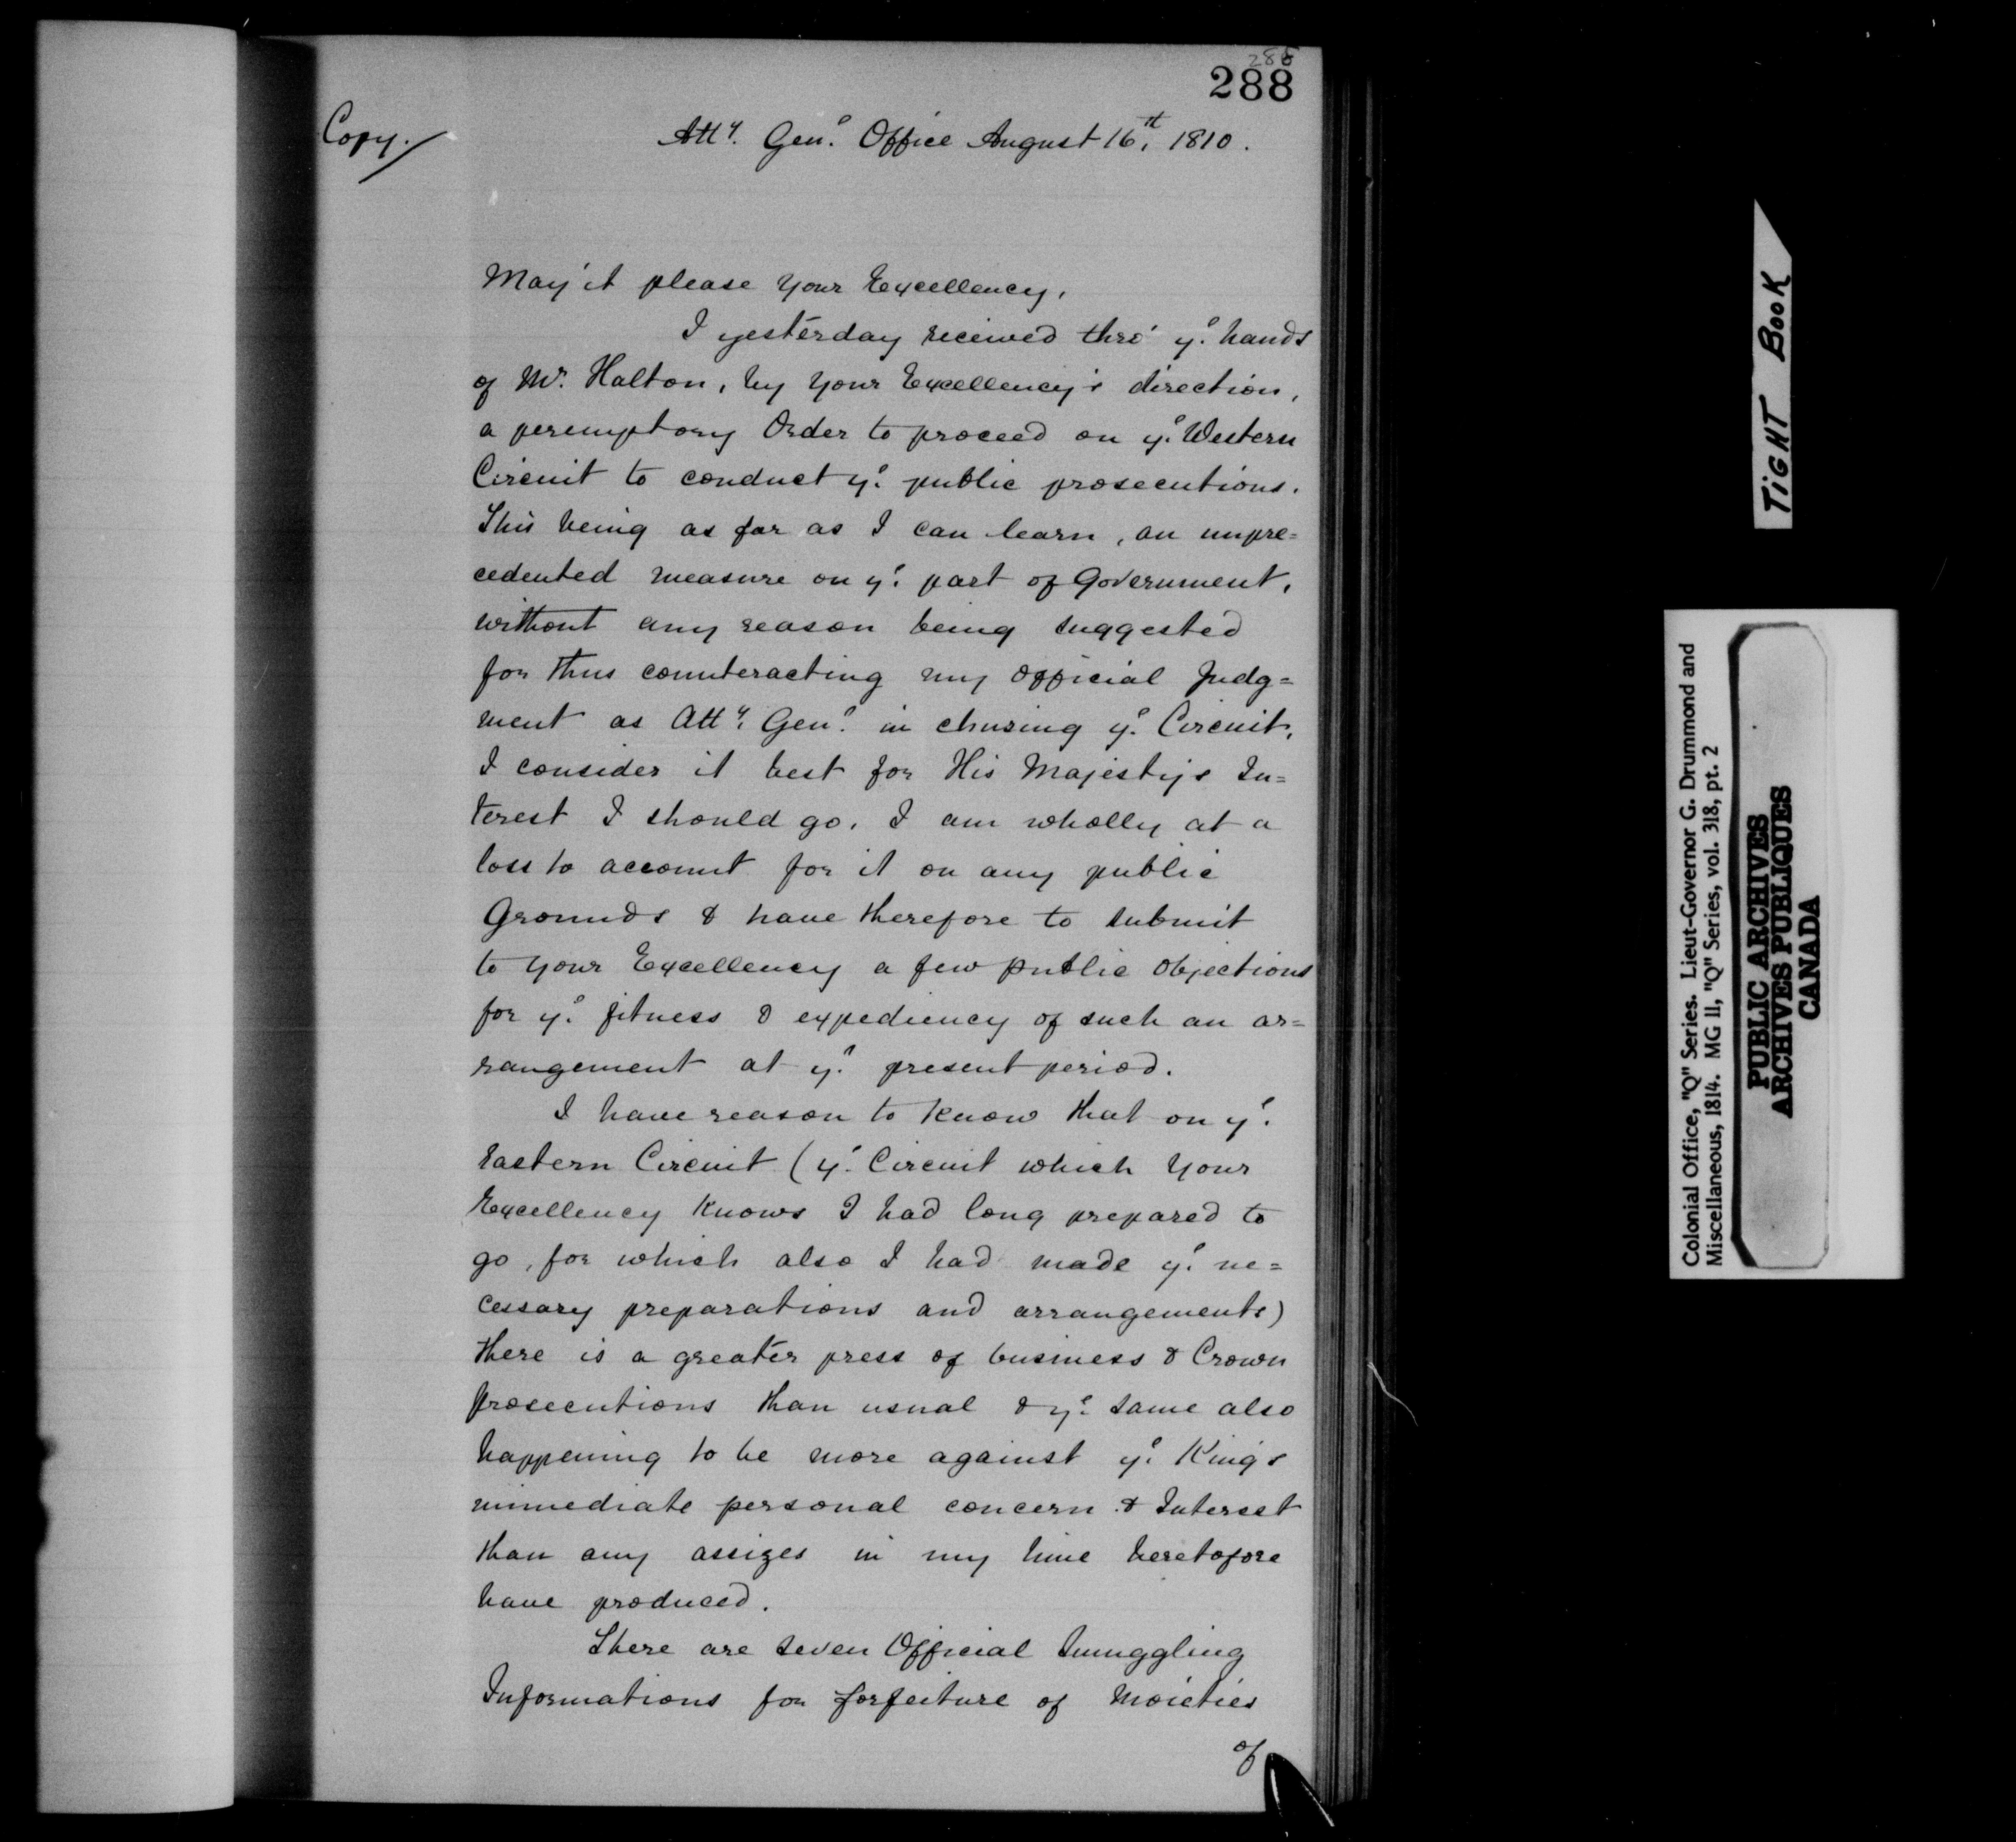 288
288
Copy.
Att.y Gen.l Office August 16.th 1810.
May it please Your Excellency,
I yesterday received thro' y.e hands
of Mr. Halton, by Your Excellency's direction,
a peremptory Order to proceed on y.e Western
Circuit to conduct y.e public prosecutions.
This being as far as I can learn, an unpre=
cedented measure on y.e part of Government,
without any reason being suggested
for thus counteracting my official Judg=
ment as Att.y Gen.l in chusing y.e Circuit,
I consider it best for His Majesty's In=
terest I should go, I am wholly at a
loss to account for it on any public
Grounds & have therefore to submit
to Your Excellency a few public objections
for y.e fitness & expediency of such an ar=
rangement at y.e present period.
I have reason to know that on y.e
Eastern Circuit (y.e Circuit which Your
Excellency knows I had long prepared to
go, for which also I had made y.e ne=
cessary preparations and arrangements)
there is a greater press of business & Crown
prosecutions than usual & y.e same also
happening to be more against y.e King's
immediate personal concern & Interest
than any assizes in my time heretofore
have produced.
There are seven Official Smuggling
Informations for forfeiture of Moieties
of
TIGHT BOOK
Colonial Office, "Q" Series. Lieut-Governor G. Drummond and
Miscellaneous, 1814. MG 11, "Q" Series, vol. 318, pt. 2
PUBLIC ARCHIVES
ARCHIVES PUBLIQUES
CANADA